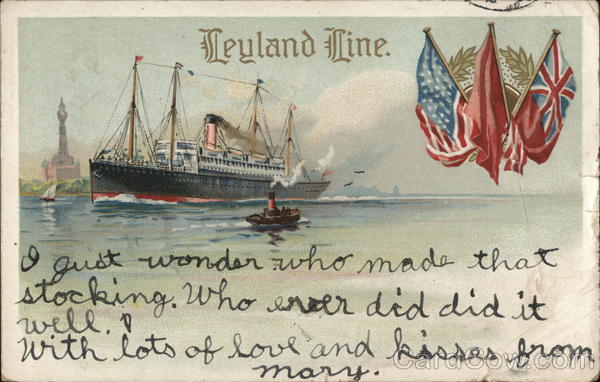 Leyland Line.
I just wonder who made that
stocking. Who ever did did it
well.
With lots of love and kisses from
mary.
CardCow.com